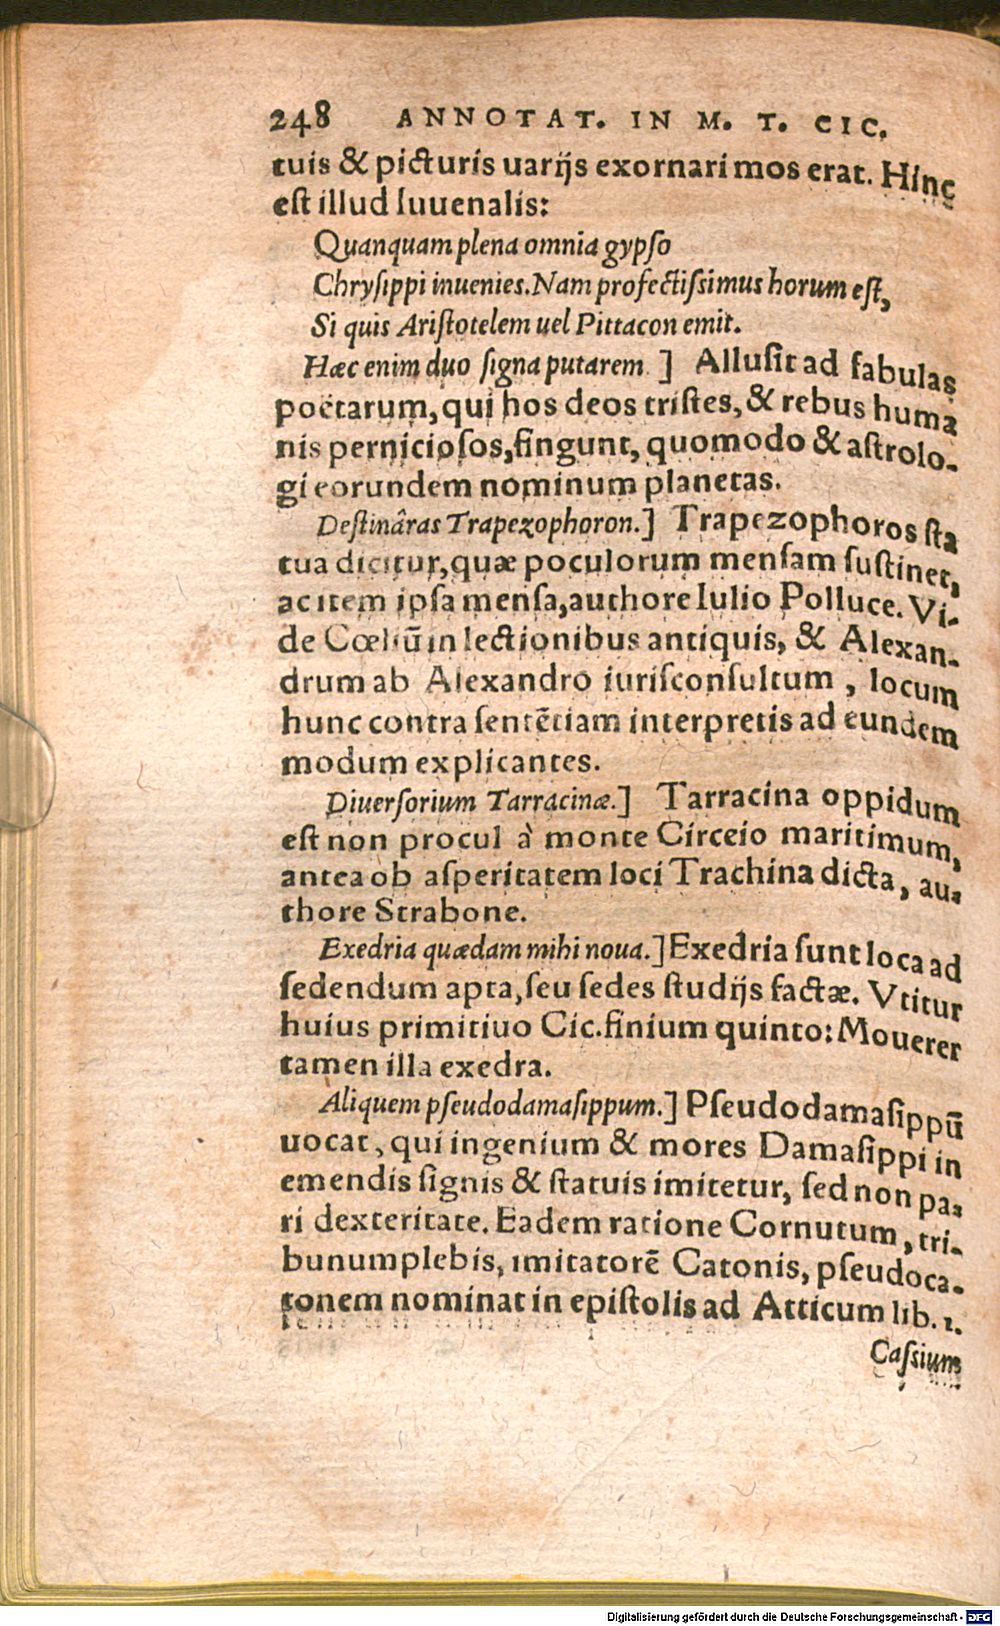 248 ANNOTAT. IN M. T. CIC.
tuis & picturis uarijs exornari mos erat. Hinc
est illud Iuuenalis:
Quanquam plena omnia gypso
Chrysippi inuenies. Nam profectissimus horum est,
Si quis Aristotelem uel Pittacon emit.
Hæc enim duo signa putarem.] Allusit ad fabulas
poëtarum, qui hos deos tristes, & rebus huma
nis perniciosos, fingunt, quomodo & astrolo-
gi eorundem nominum planetas.
Destinâras Trapezophoron.] Trapezophoros sta
tua dicitur, quæ poculorum mensam sustinet,
ac item ipsa mensa, authore Iulio Polluce. Vi-
de Cœliū in lectionibus antiquis, & Alexan-
drum ab Alexandro iurisconsultum, locum
hunc contra sentētiam interpretis ad eundem
modum explicantes.
Diuersorium Tarracinæ.] Tarracina oppidum
est non procul à monte Circeio maritimum,
antea ob asperitatem loci Trachina dicta, au-
thore Strabone.
Exedria quædam mihi noua.] Exedria sunt loca ad
sedendum apta, seu sedes studijs factæ. Vtitur
huius primitiuo Cic. finium quinto: Mouerer
tamen illa exedra.
Aliquem pseudodamasippum.] Pseudodamasippū
uocat, qui ingenium & mores Damasippi in
emendis signis & statuis imitetur, sed non pa-
ri dexteritate. Eadem ratione Cornutum, tri-
bunum plebis, imitatorē Catonis, pseudoca-
tonem nominat in epistolis ad Atticum lib. 1.
Cassium
Digitalisierung gefördert durch die Deutsche Forschungsgemeinschaft - DFG